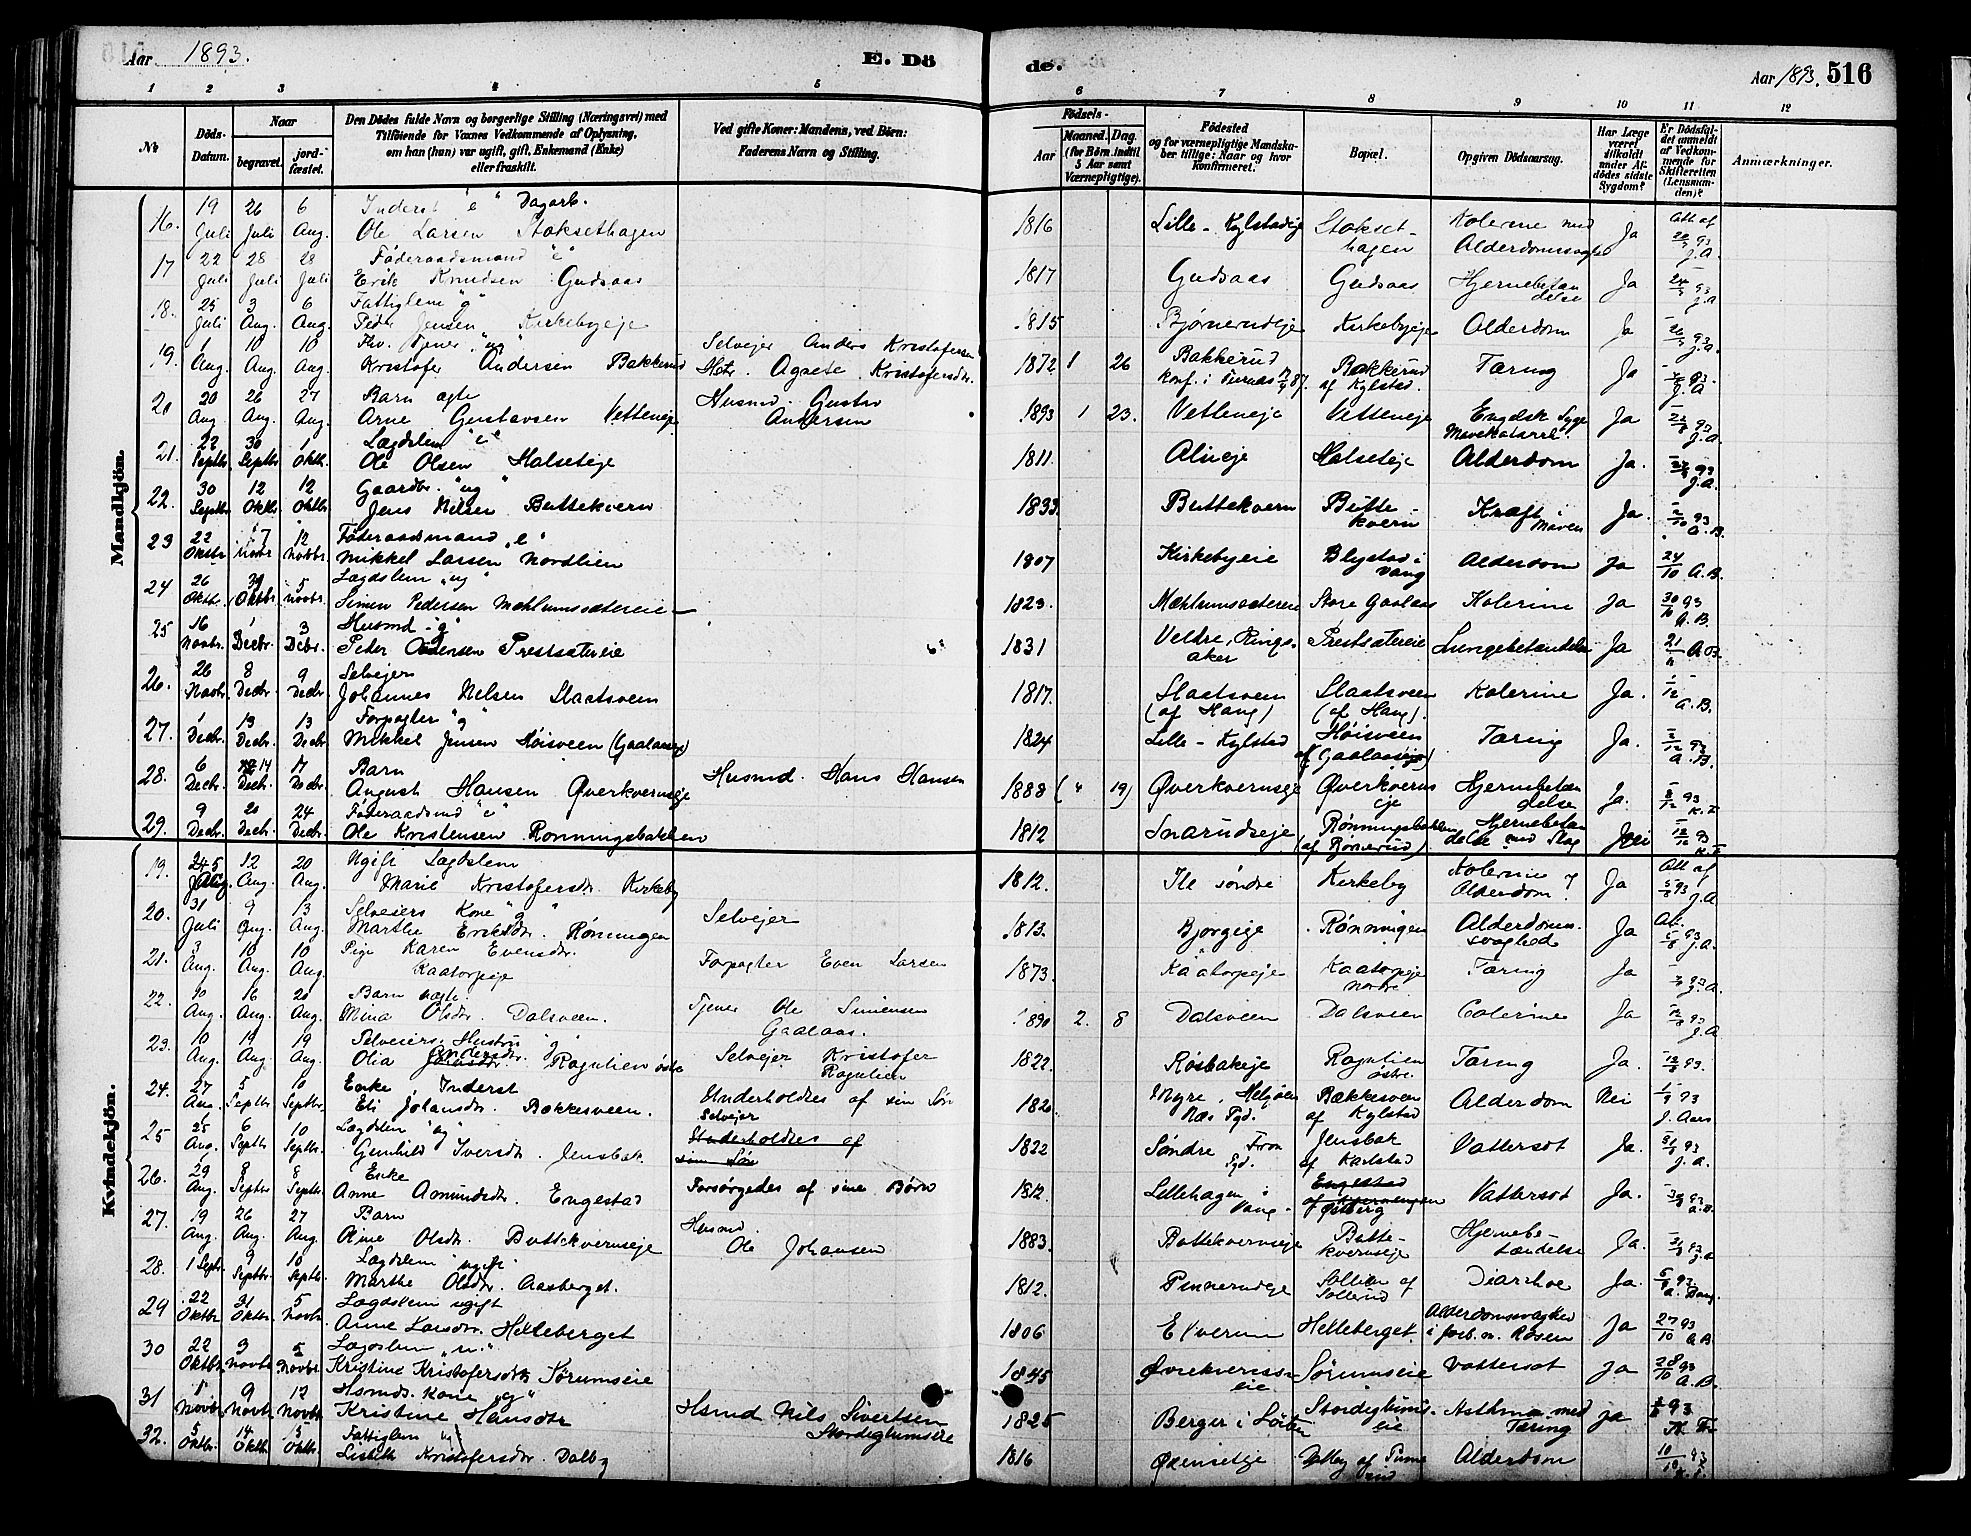 Aar 1893. E. Dö
de. Aar 1893. 516
1 2 3 4 5
6 7 8 9 10 11 12
No Döds-Datum. Naar begravet. jordfæstet. Den Dödes fulde Navn og borgerlige Stilling (Næringsvei) med Tilföiende for Voxnes Vedkommende af Oplysning, om han (hun) var ugift, gift, Enkemand (Enke) eller fraskilt. Ved gifte Koner: Mandens, ved Börn: Faderens Navn og Stilling.
Födsels- Aar Maaned. Dag. (for Börn indtil 5 Aar samt Værnepligtige). Födested og for værnepligtige Mandskaber tillige: Naar og hvor konfirmeret. Bopæl. Opgiven Dödsaarsag. Har Læge været tilkaldt under Afdödes sidste Sygdom? Er Dödsfaldet anmeldt af Vedkommende for Skifteretten (Lensmanden)? Anmærkninger.
Mandkjön.
16. 19 Juli 26 Juli 6 Aug. Inderst "e" Dagarb. Ole Larsen Stoksethagen 1816 Lille-Kylstadeje Stoksethagen Kolerine med Ja Att af
17 22 Juli 28 Juli 28 Juli Föderaadsmand "e" Erik Knudsen Gudsaas 1817 Gudsaas Gudsaas Hjernebetændelse Ja 93 J.A
18. 25 Juli 3 Aug. 6 Aug. Fattiglem "g" Peder Jensen Kirkebyeje 1815 Bjørnerudeje Kirkebyeje Alderdom Ja 93 J.A.
19. 1 Aug. 10 Aug. 10 Aug. Kristofer Andersen Bakkerud Selvejer Anders Kristofersen Agnete Kristofersdr. 1872 1 26 Bakkerud Bakkerud af Kylstad. Tæring Ja 93. J.A
20 20 Aug. 26 Aug. 27 Aug. Barn ægte Arne Gustavsen Vetteneje Husmd. Gustav Andersen 1893 1 23. Vetteneje Vetteneje Engelsk Syge Mavekatarrh. Ja 93 J.A.
21. 22 Septbr. 30 Septbr 1 Oktbr. Lægdslem "e" Ole Olsen Halseteje 1811. Alueje Halseteje Alderdom Ja. 93 J.A.
22. 30 Septbr 12 Oktbr 12 Oktbr Gaardbr. "ug" Jens Nilsen Buttekvern 1833. Buttekvern Buttekvern Kræft i Maven Ja. 93
23 22 Oktbr 7 Novbr 12 Novbr. Föderaadsmand "e" Mikkel Larsen Nordlien 1807 Kirkebyeie Blystad i Vang Alderdom Ja 24/10 A.B.
24 26 Oktbr. Oktbr 5 Novbr. Lægdslem "ug" Simen Pedersen Mæhlumsætereie 1823. Mæhlumsætereie Store Gaalaas Kolerine Ja 30/10 93 A.B.
25 16 Novbr. 1 Decbr. 3 Decbr. Husmd "g" Peter Prestsætereie 1831 Veldre, Ringsaker Prestsætereie Lungebetændelse Ja 21/11 A.B.
26. 26 Novbr. 8 Decbr. 9 Decbr. Selvejer Johannes Nilsen Slaatsveen 1817. Slaatsveen (af Haug) Slaatsveen (af Haug). Kolerine Ja. A.B.
27. 1 Decbr. 13 Decbr. 13 Decbr. Forpagter "g" Mikkel Jensen Høisveen (Gaalaaseje) 1824 Lille-Kylstad Høisveen (af Gaalaaseje) Tæring Ja. 93 A.B.
28. 6 Decbr. 14 Decbr. 17 Decbr. Barn August Hansen Øverkverneje Husmd. Hans Hansen 1888 (" 19) Øverkverneje Øverkverneje Hjernebetændelse Ja. 8/12 93 K.F.
29. 9 Decbr. 20 Decbr. 24 Decbr. Föderaadsmd "e" Ole Kristensen Rønningsbakken 1812 Snarudseje Rønningsbakken Hjernebetændelse med Slag 93
Kvindekjön.
19. Aug. 12 Aug. 20 Aug. Ugift Lægdslem Marie Kristofersdr. Kirkeby 1812. Ile søndre Kirkeby Kolerine og Alderdom Ja Att af 93 J.A.
20. 31 Juli 9 Aug. 13 Aug. Selveiers Kone "g" Marthe Eriksdr. Rønningen Selvejer 1813. Bjørgeje Rønningen Alderdomssvaghed Ja 93 J.A.
21. 3 Aug. 10 Aug. 10 Aug. Pige Karen Evensdr. Kaatorpeje Forpagter Even Larsen 1873 Kaatorpeje Kaatorpeje nordre Tæring Ja 93 J.A.
22. 10 Aug. 16 Aug. 20 Aug. Barn ægte. Mina Olsdr. Dalsveen. Tjener Ole Simensen Gaalaas. 1890 2. 8 Dalsveen Dalsveen Colerine Ja 93 J.A
23. 10 Aug. 19 Aug. 19 Aug. Selveiers Hustru "g" Olia Andersdr. Rogulien østre Selvejer Kristofer Rogulien 1822. Røsbakeje Rogulien østre. Tæring Ja. 93.
24. 27 Aug. 5 Septbr 10 Septbr. Enke Inderst Eli Johansdr. Bakkesveen. Underholdtes af sin Søn Selvejer 1820 Myre, Helgøen Næs Pgd. Bakkesveen af Kylstad Alderdom Nei 93 J. Aas
25 25 Aug. 6 Septbr 10 Septbr. Lægdslem "ug" Gunhild Iversdr. Jensbak. Underholdtes af sin Søn 1822 Søndre Fron Pgd. Jensbak af Karlstad Vattersot Ja. 93 J.A.
26. 29 Aug. 8 Septbr 8 Septbr. Enke Anne Amundsdr. Engestad Forsørgedes af sine Børn 1812. Lillehagen i Vang Engestad Vattersot Ja. 93
27. 19 Aug. 26 Aug. 27 Aug. Barn Olsdr. Buttekverneje Husmd. Ole Johansen 1883. Buttekverneje Buttekverneje Hjernebetændelse Ja. 93
28. 1 Septr. 9 Septbr. 10 Septbr Lægdslem ugift Marthe Olsdr. Aasberget. 1812. Pinnerudeje Sollien af Sollerud Diarrhoe Ja. 93
29 22 Oktbr 31 Oktbr. 5 Novbr. Lægdslem ugift Anne Larsdr. Helleberget 1806 Elverum Helleberget. Rosen Ja 27/10 93 A.B
30 22 Oktbr. 3 Novbr 5 Novbr. Lægdslem Kristine Kristofersdtr Sørumseie 1845 Sørumseie Vattersot Ja 28/10 93 A.B.
31 1 Novbr. 9 Novbr. 12 Novbr Hsmds. Kone "g" Kristine Hansdtr Hsmd Nils Sivertsen 1825 Berger i Løiten Asthma med Tæring Ja 93
32. 5 Oktbr. 14 Oktbr 15 Oktbr. Fattiglem Lisbeth Kristofersdr. Dalby 1816 Øxenseteje Alderdom